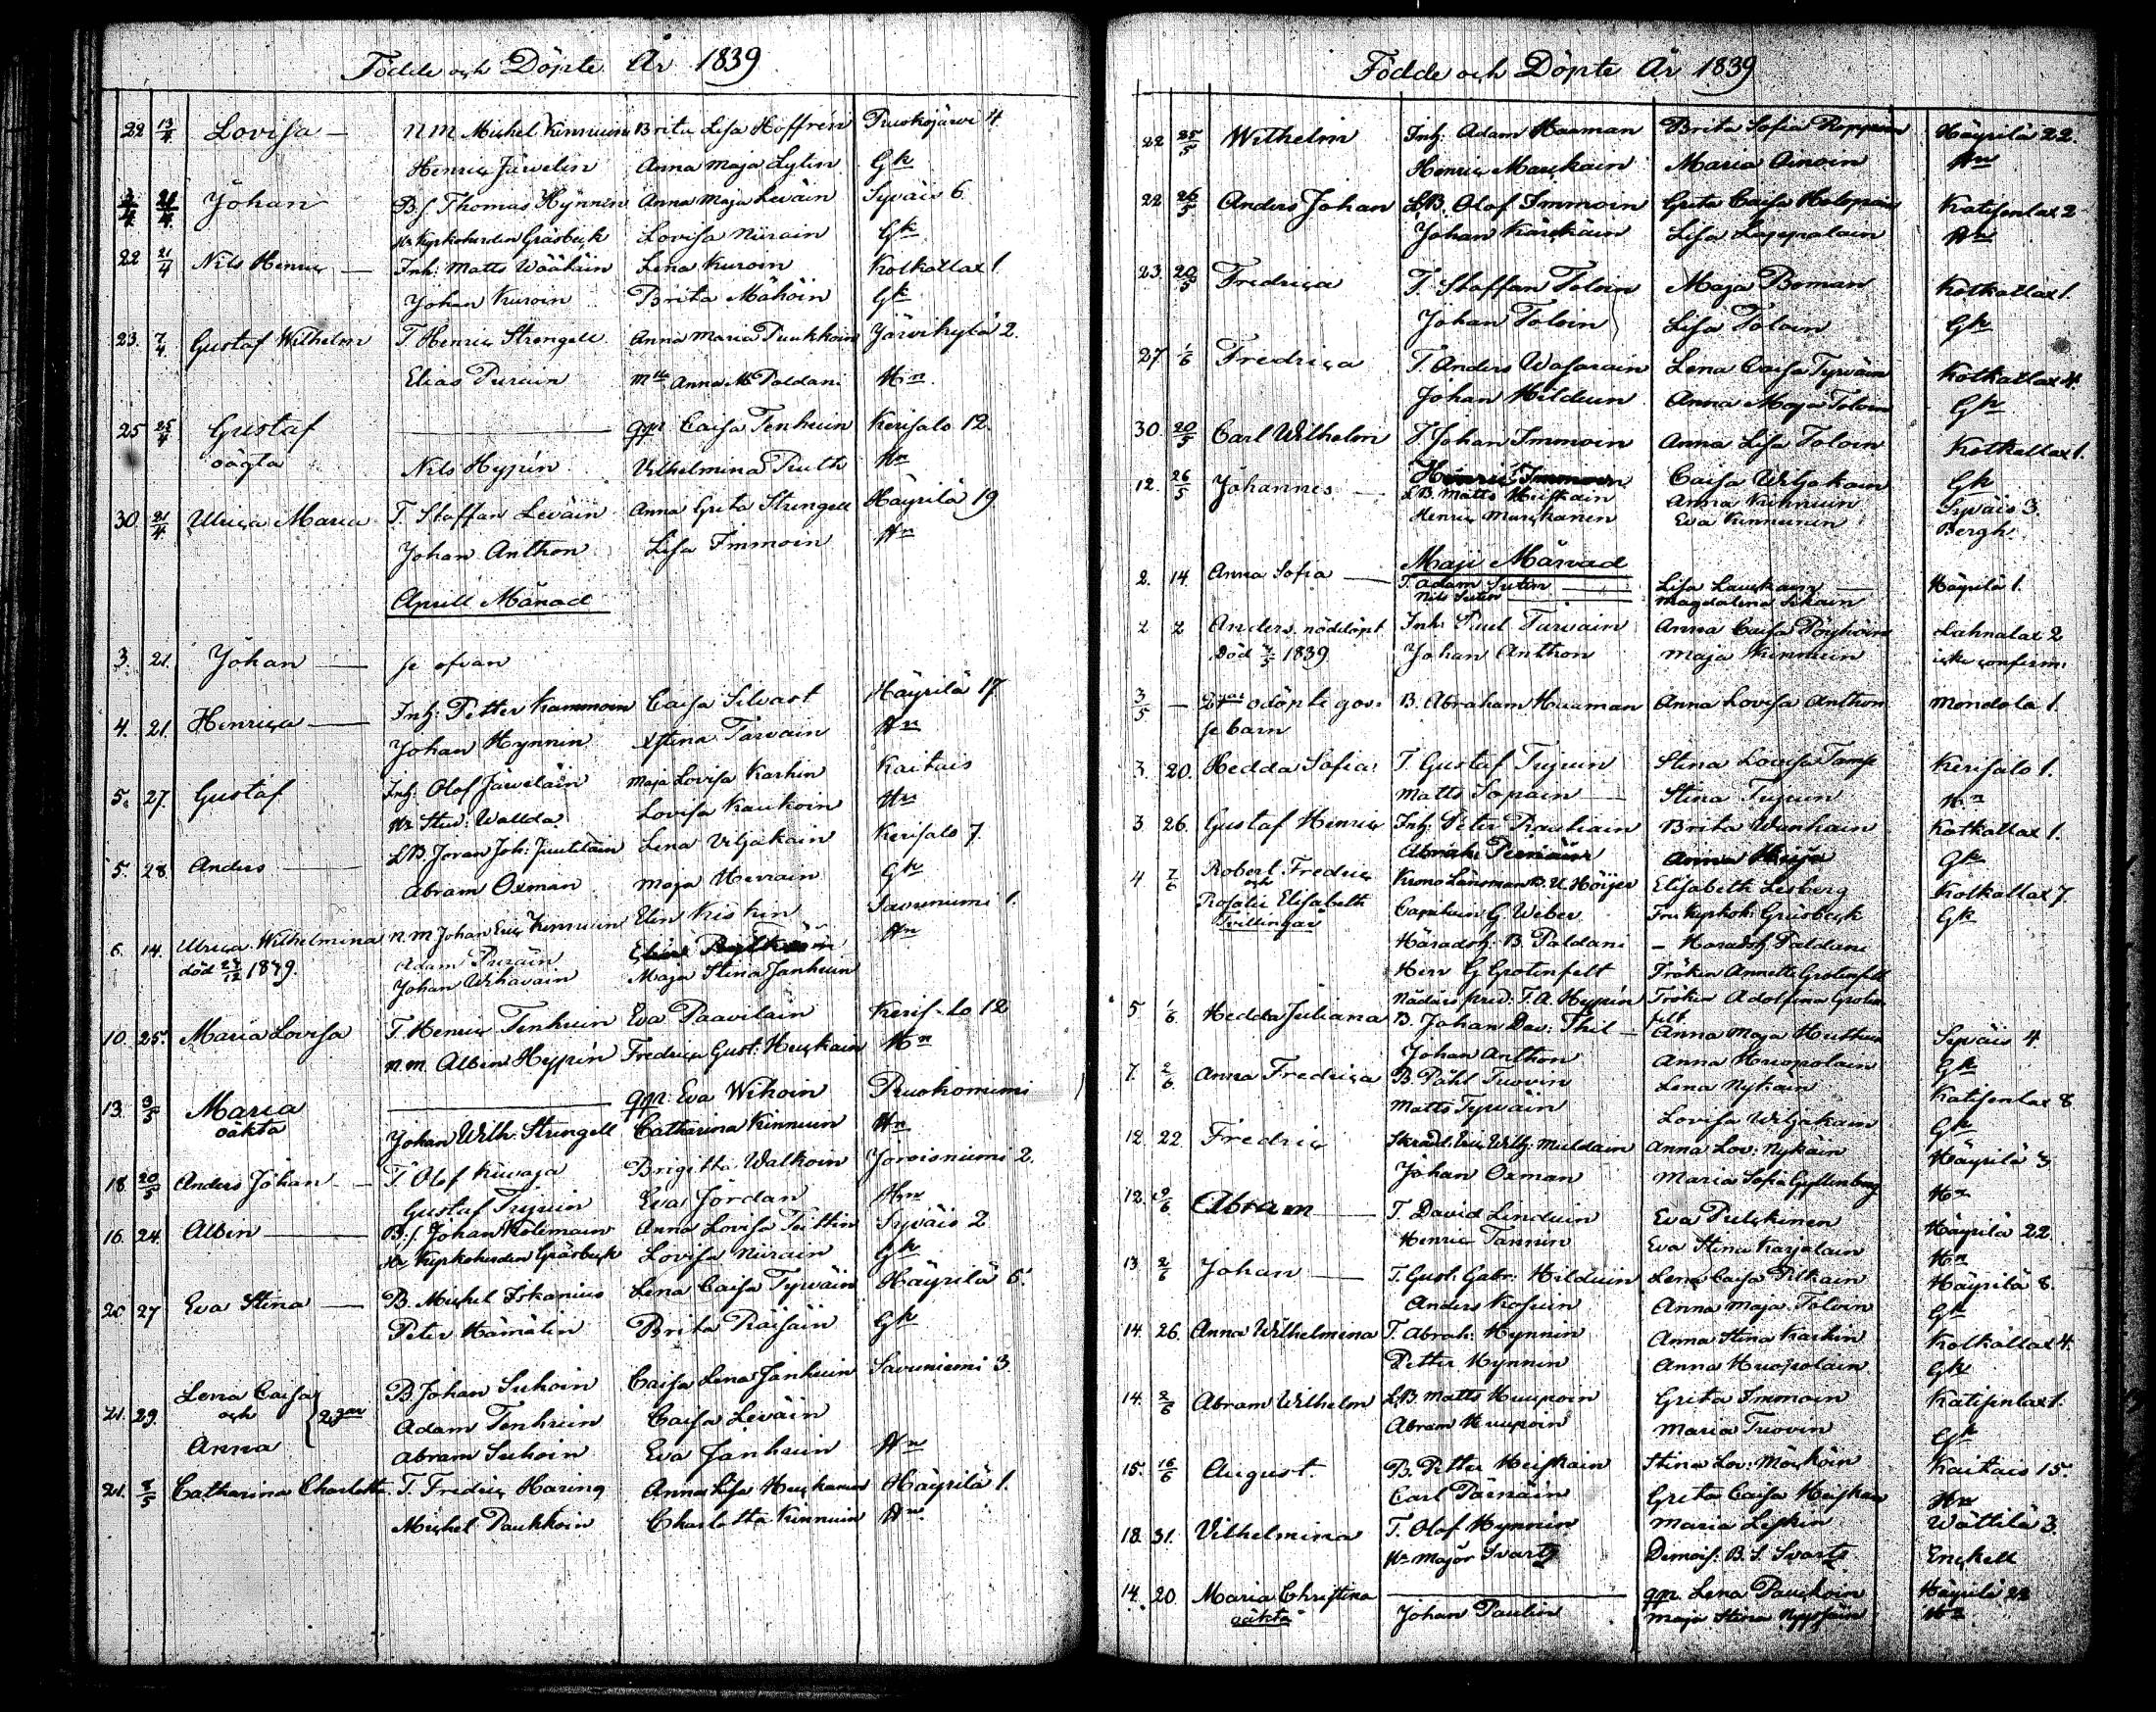 Födde och Döpte År 1839
22 13/4 Lovisa — N.M. Michel Kinnuin Brita Lisa Hoffrén Ruokojärvi 4
Henric Järvelin Anna Maja Lytin Gk
3/4 21/4 Johan B.S. Thomas Hynnin Anna Maja Leväin Syväis 6
Hr Kyrkoherden Gråsbeck Lovisa Niirain Gk
22 21/4 Nils Henric — Inh: Matts Wääkäin Lena Kuroin Kolkallax 1.
Johan Kuroin Brita Mähöin Gk
23. 7/4 Gustaf Wilhelm T. Henric Strengell Anna Maria Puukkoin Järvikylä 2.
Elias Puruin Mlle Anna M. Poldani Hn
25 25/4 Gustaf — qpr. Caisa Tenhuin Kerisalo 12
oägta Nils Hypén Vilhelmina Ruth Hn
30. 21/4 Ulrica Maria T. Staffan Leväin Anna Greta Strengell Häyrilä 19
Johan Anthon Lisa Immoin Hn
Aprill Månad
3. 21. Johan — se ofvan
4. 21. Henrica — Inh: Petter Kammoin Caisa Silvast Häyrilä 17
Johan Hynnin Xstina Tarvain Hn
5. 27. Gustaf Inh: Olof Järveläin Maja Lovisa Karhin Kaitais
Hr Stud: Wallda Lovisa Kaukoin Hn
5. 28. Anders — LB. Joran Joh: Juutilain Lena Viljakain Kerisalo 7.
Abram Oxman Maja Herrain Gk
6. 14. Ulrica Wilhelmina N.M. Johan Eric Kinnuin Elin Kiskin Savuniemi 1.
död 27/12 1879. Adam Puräin Hn
Johan Wihavain Maja Stina Janhuin
10. 25. Maria Lovisa T. Henric Tenhuin Eva Paavilain Kerisalo 12
N.M. Albin Hypén Fredrica Gust: Heiskain Hn
13. 3/5 Maria — qpr. Eva Wikoin Ruokoniemi
oäkta Johan Wilh. Strengell Catharina Kinnuin Hn
18. 20/5 Anders Johan — T. Olof Kuvaja Brigitta Walkoin Joroisniemi 2.
Gustaf Tujuin Eva Jordan Hn
16. 24. Albin — B.S. Johan Kolimain Anna Lovisa Tuttin Syväis 2
Hr Kyrkoherden Gråsbeck Lovisa Niirain Gk
20 27 Eva Stina — B. Michel Iskanius Lena Caisa Tyrväin Häyrilä 6.
Peter Hämälin Brita Räisäin Gk
Lena Caisa B. Johan Suhoin Caisa Lena Janhuin Savuniemi 3
21. 29. och 2gar Adam Tenhuin Caisa Leväin
Anna Abram Suhoin Eva Janhuin Hn
21. 5/5 Catharina Charlotta T. Fredric Haring Anna Lisa Heiskanen Häyrilä 1.
Michel Paukkoin Charlotta Kinnuin Hn
Födde och Döpte År 1839
22 25/5 Wilhelm Inh: Adam Haaman Brita Sofia Roppoin Häyrilä 22.
Henric Maukain Maria Ainoin Hn
22 26/5 Anders Johan LB. Olof Immoin Greta Caisa Holopain Katisenlax 2
Johan Kärkäin Lisa Lappalain Hn
23. 20/5 Fredrica T. Staffan Toloin Maja Boman Kolkallax 1.
Johan Toloin Lisa Toloin Gk
27 1/6 Fredrica T. Anders Wasarain Lena Caisa Tyrväin Kolkallax 4.
Johan Hilduin Anna Maja Toloin Gk
30. 20/5 Carl Wilhelm T. Johan Immoin Anna Lisa Toloin Kolkallax 1.
Henric Immoin Caisa Wiljakain Gk
12. 26/5 Johannes — LB. Matts Heiskain Anna Kuhnuin Syväis 3.
Henric Marskanen Eva Kinnunen Bergh.
Maji Månad
2. 14. Anna Sofia — T. Adam Sutin Lisa Laukain Häyrilä 1.
Nils Sutin Magdalena Sikain
2 2 Anders. nöddöpt Inh: Paul Tarvain Anna Caisa Pöyhöin Lahnalax 2
Död 4/5 1839 Johan Anthon Maja Kinnuin icke confirm:
3/5 — 2gar odöpte gos- B. Abraham Haaman Anna Lovisa Anthon Mondola 1.
se barn
3. 20. Hedda Sofia T. Gustaf Tujuin Stina Lovisa Tamp Kerisalo 1.
Matts Sopain — Stina Tujuin Hn
3. 26. Gustaf Henric Inh: Peter Rauhiain Brita Wanhain Kolkallax 1.
Abrah: Gk
4 7/6 Robert Fredric Krono Länsman B. U. Höijer Elisabeth Lesberg Kolkallax 7.
och Rosalie Elisabeth Capitain G. Weber. Fru Kyrkoh: Gråsbeck Gk
Tvillingar Häradsh: B. Paldani — Haradsh Paldani
Herr G Grotenfelt Fröken Annette Grotenfelt
Nådårs pred: T. A. Hypén Fröken Adolfina Grotenfelt
5 1/6 Hedda Juliana B. Johan Dav: Thil — Anna Maja Huttuin Syväis 4.
Johan Anthon Anna Huopolain Gk
7. 2/6 Anna Fredrica B. Påhl Tuovin Lena Nykäin Katisenlax 8
Matts Tyrväin Lovisa Wiljakain Gk
12. 22 Fredric Skrädd: Eric Wilh: Muldain Anna Lov: Nykäin Häyrilä 3
Johan Oxman Maria Sofia Gyllenberg Hn
12. 2/6 Abram — T. David Linduin Eva Pulckinen Häyrilä 22
Henric Tannin Eva Stina Karjalain Hn
13 2/6 Johan — T. Gust: Gabr: Hilduin Lena Caisa Pitkain Häyrilä 8.
Anders Kosuin Anna Maja Toloin Gk
14. 26. Anna Wilhelmina T. Abrah: Hynnin Anna Stina Karhin Kolkallax 4.
Petter Hynnin Anna Huopolain Gk
14. 2/6 Abram Wilhelm LB. Matts Huupoin Greta Immoin Katisenlax 1.
Abram Huupoin Maria Tuovin Gk
15. 16/6 August. B. Petter Heiskain Stina Lov: Mörköin Kaitais 15.
Carl Pärnäin Greta Caisa Heiskain Hn
18. 31. Vilhelmina T. Olof Hynnin Maria Leskin Wättilä 3.
Hr Major Svartz Demois: B. S. Svartz Enckell
14. 20. Maria Christina — qpr. Lena Pauckoin Häyrilä 22
oäkta Johan Paulin Maja Stina Hn